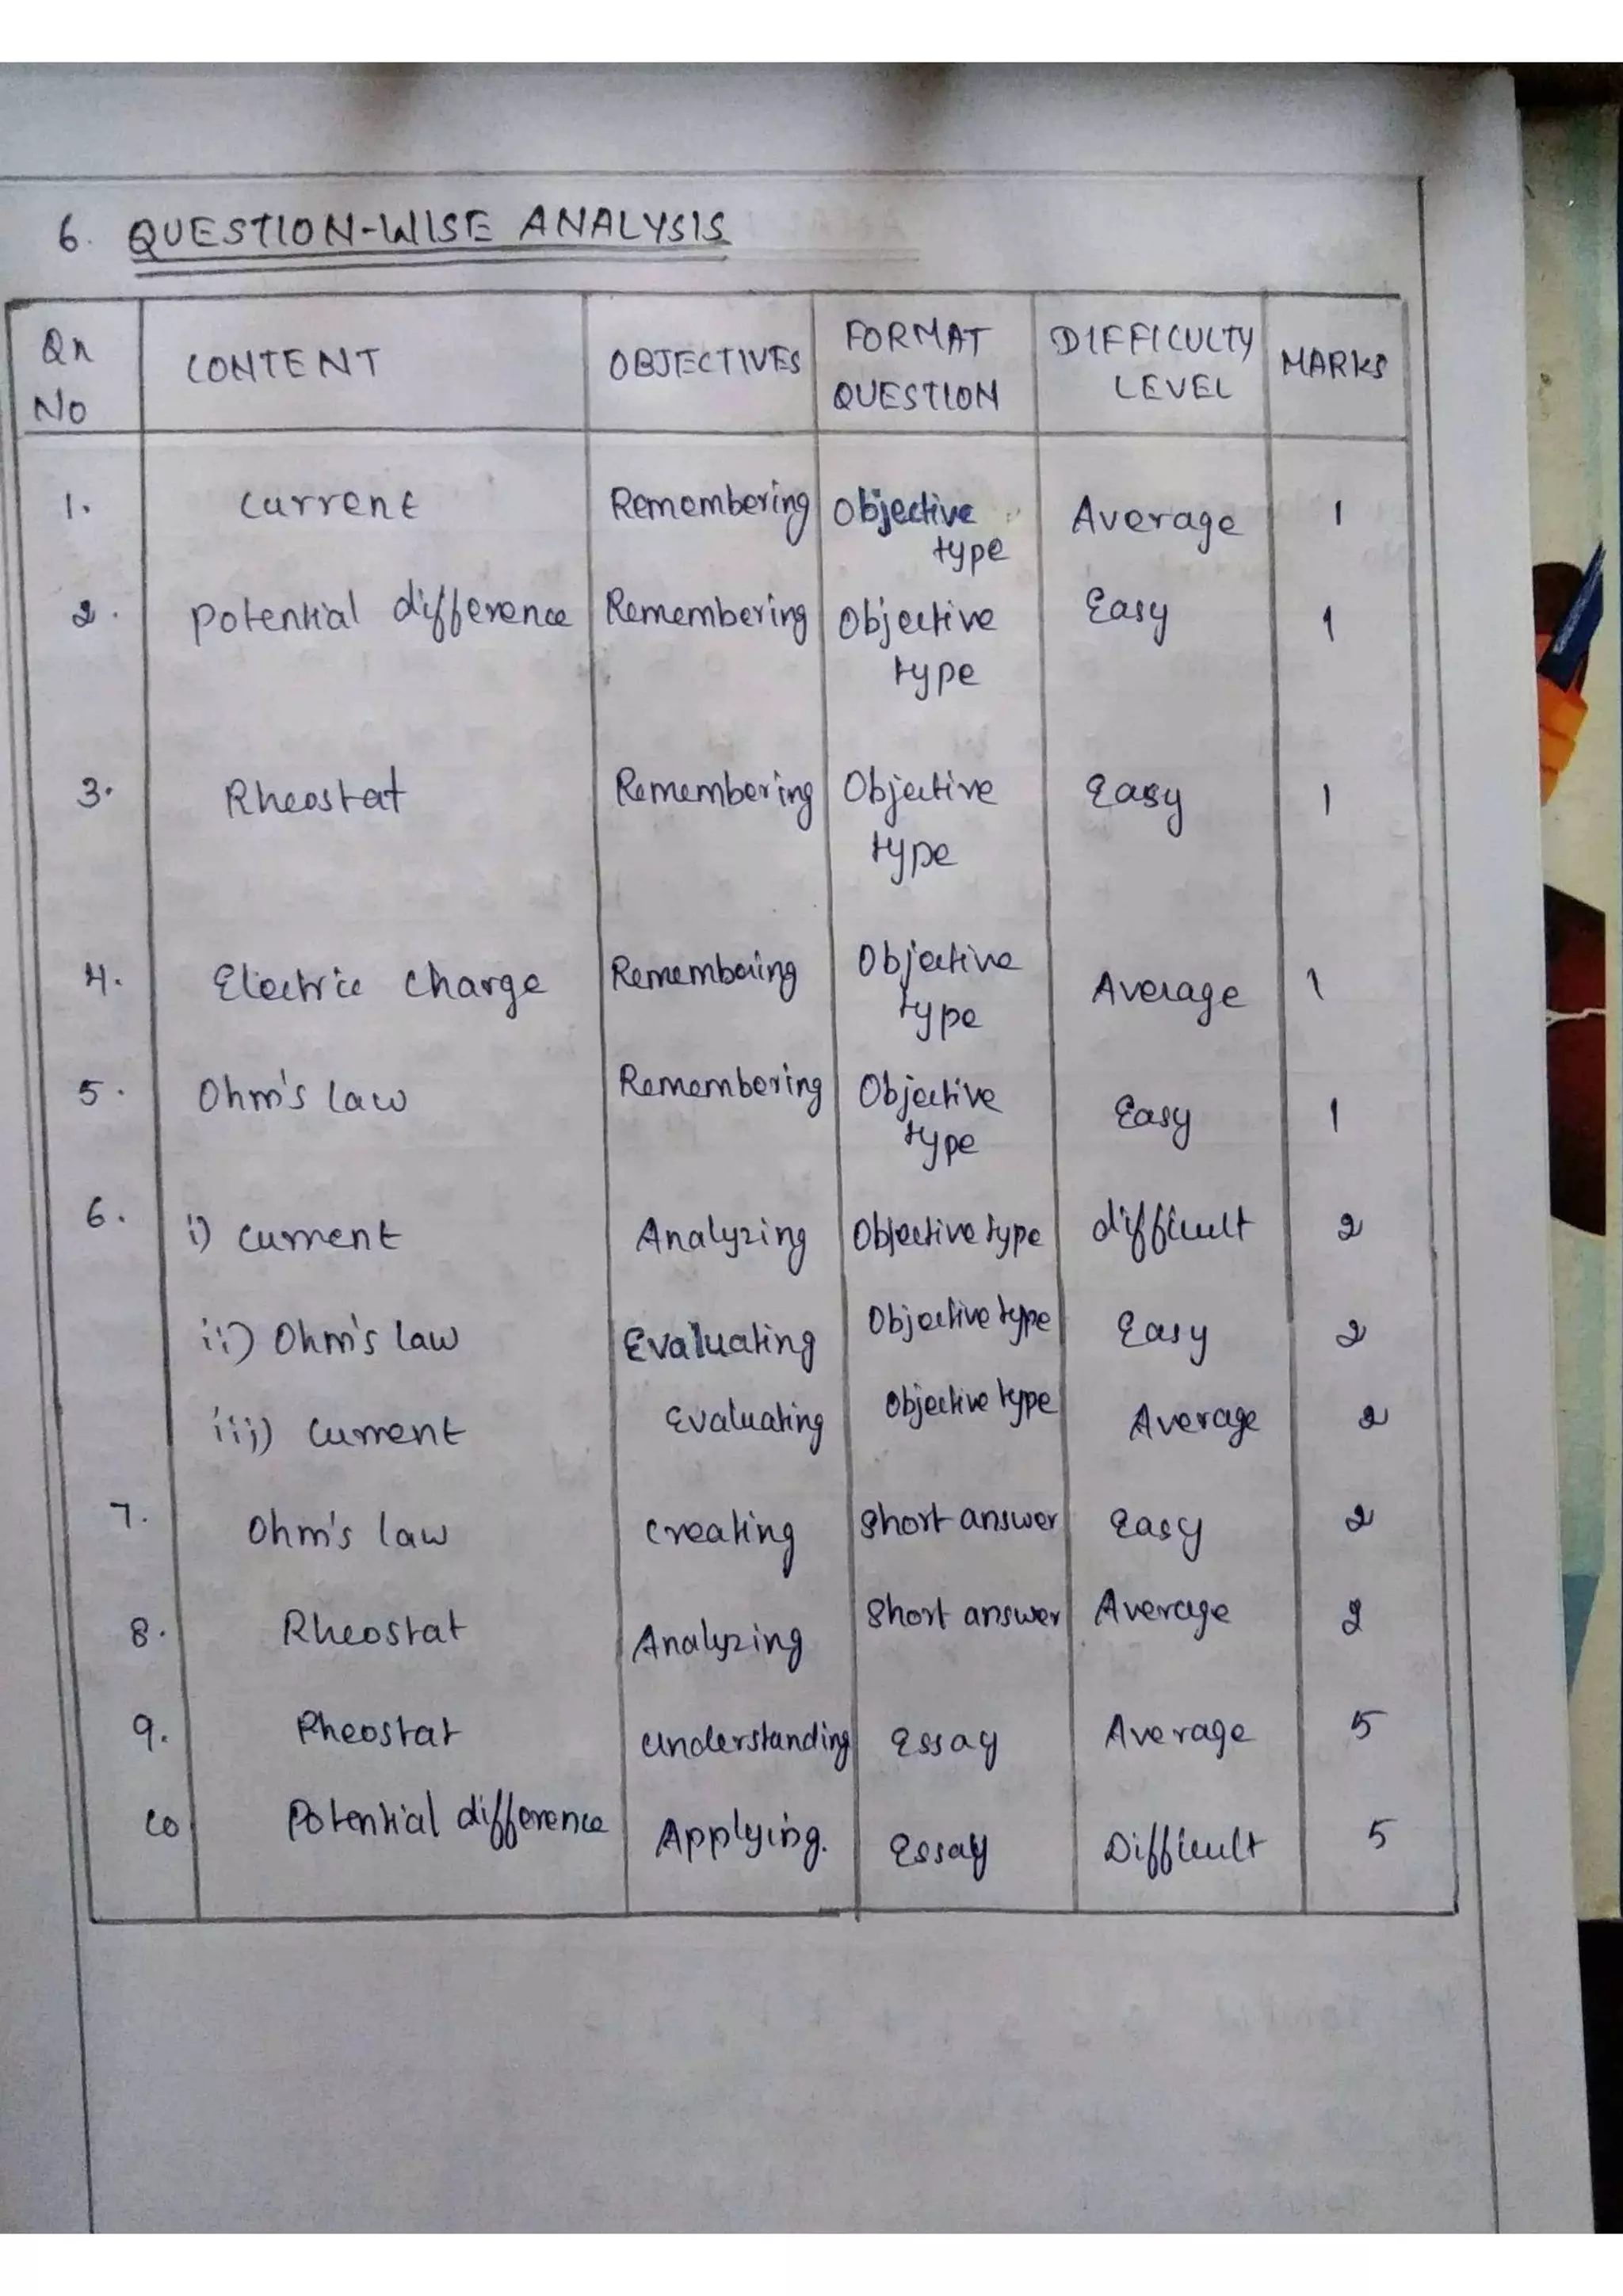 6. QUESTION-WISE ANALYSIS
Qn No CONTENT OBJECTIVES FORMAT QUESTION DIFFICULTY LEVEL MARKS
1. Current Remembering Objective type Average 1
2. Potential difference Remembering Objective type Easy 1
3. Rheostat Remembering Objective type Easy 1
4. Electric charge Remembering Objective type Average 1
5. Ohm's law Remembering Objective type Easy 1
6. i) current Analyzing Objective type difficult 2
ii) Ohm's law Evaluating Objective type Easy 2
iii) Current Evaluating Objective type Average 2
7. Ohm's law Creating Short answer Easy 2
8. Rheostat Analyzing Short answer Average 2
9. Rheostat Understanding Essay Average 5
10 Potential difference Applying. Essay Difficult 5